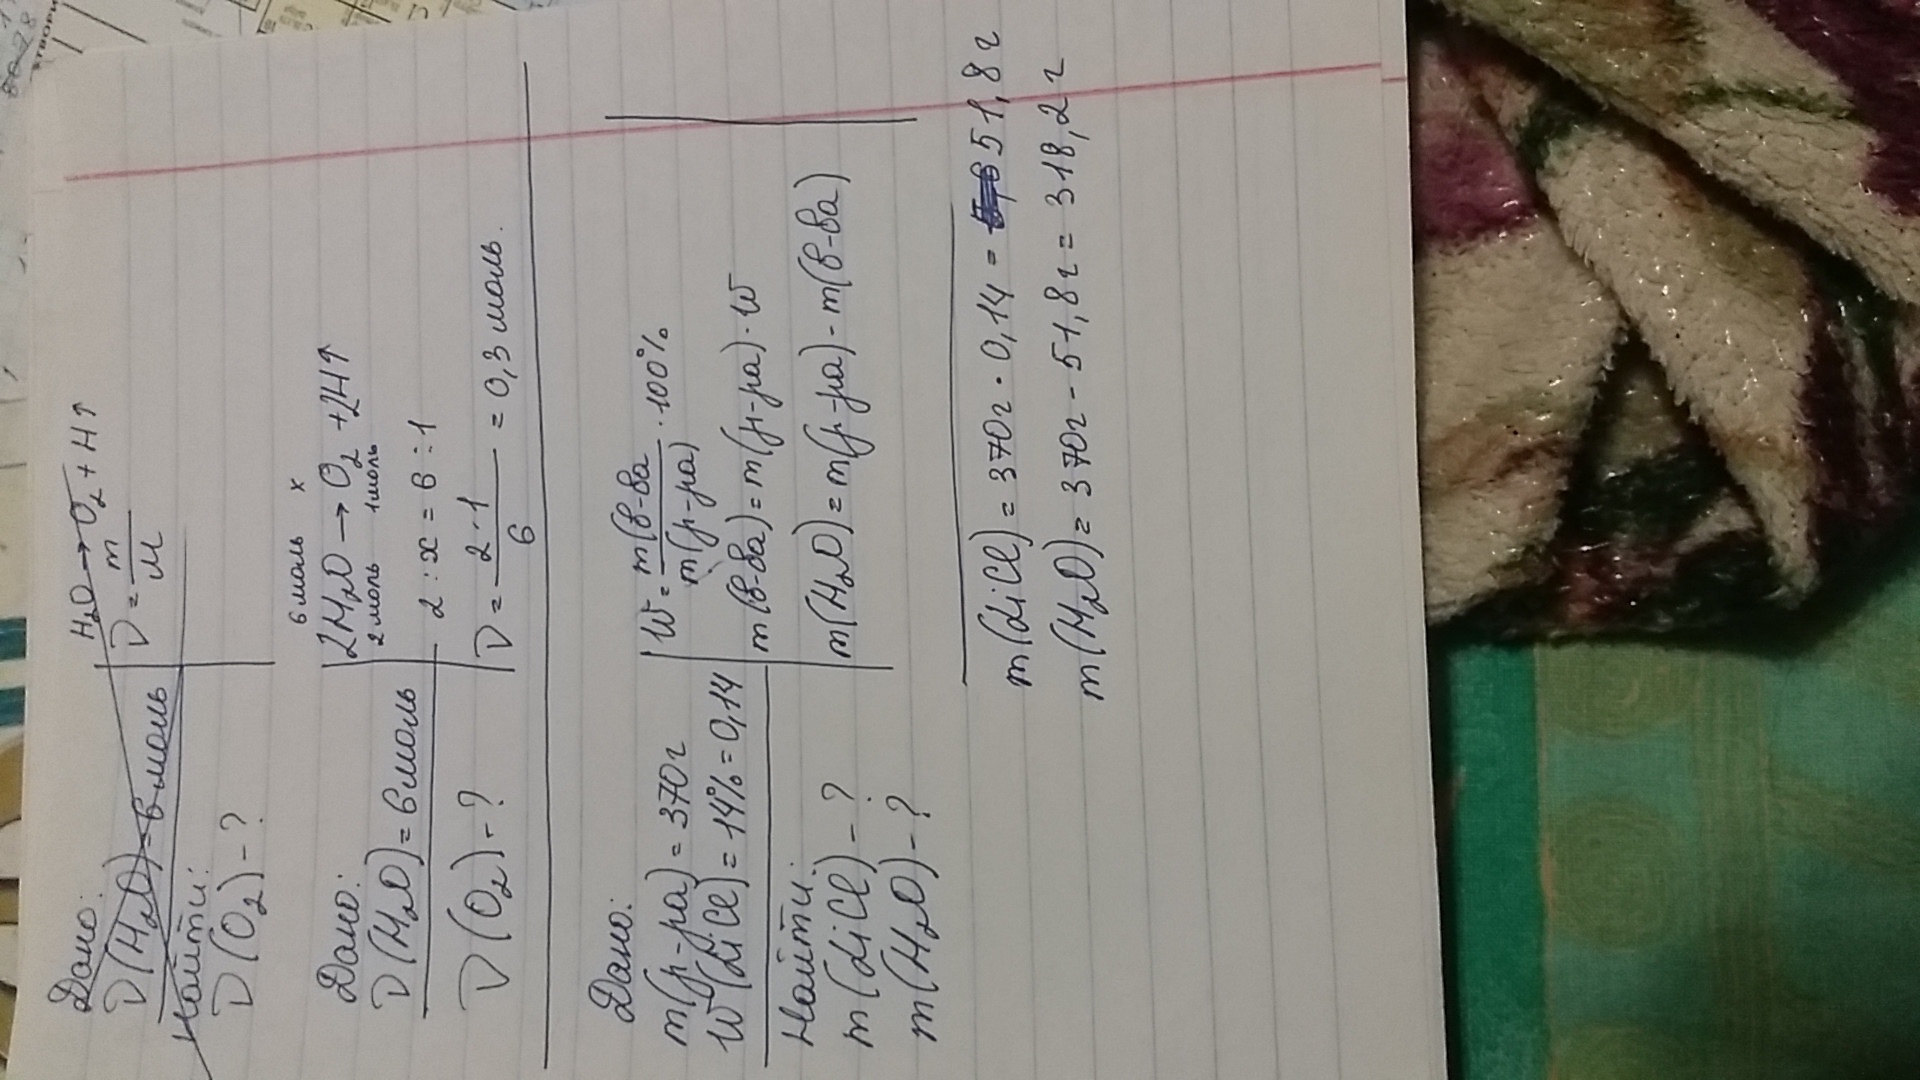 Дано:
ν(H₂O)=6 моль
Найти:
ν(O₂)-?
H₂O→O₂+H↑
ν=m/M
Дано:
ν(H₂O)=6моль
ν(O₂)-?
6 моль x
2H₂O→O₂+2H↑
2 моль 1моль
2:x=6:1
ν=2·1/6=0,3 моль.
Дано:
m(р-ра)=370г
W(LiCl)=14%=0,14
Найти:
m(LiCl)-?
m(H₂O)-?
W=m(в-ва/m(р-ра)·100%
m(в-ва)=m(р-ра)·W
m(H₂O)=m(р-ра)-m(в-ва)
m(LiCl)=370г·0,14=51,8г
m(H₂O)=370г-51,8г=318,2г